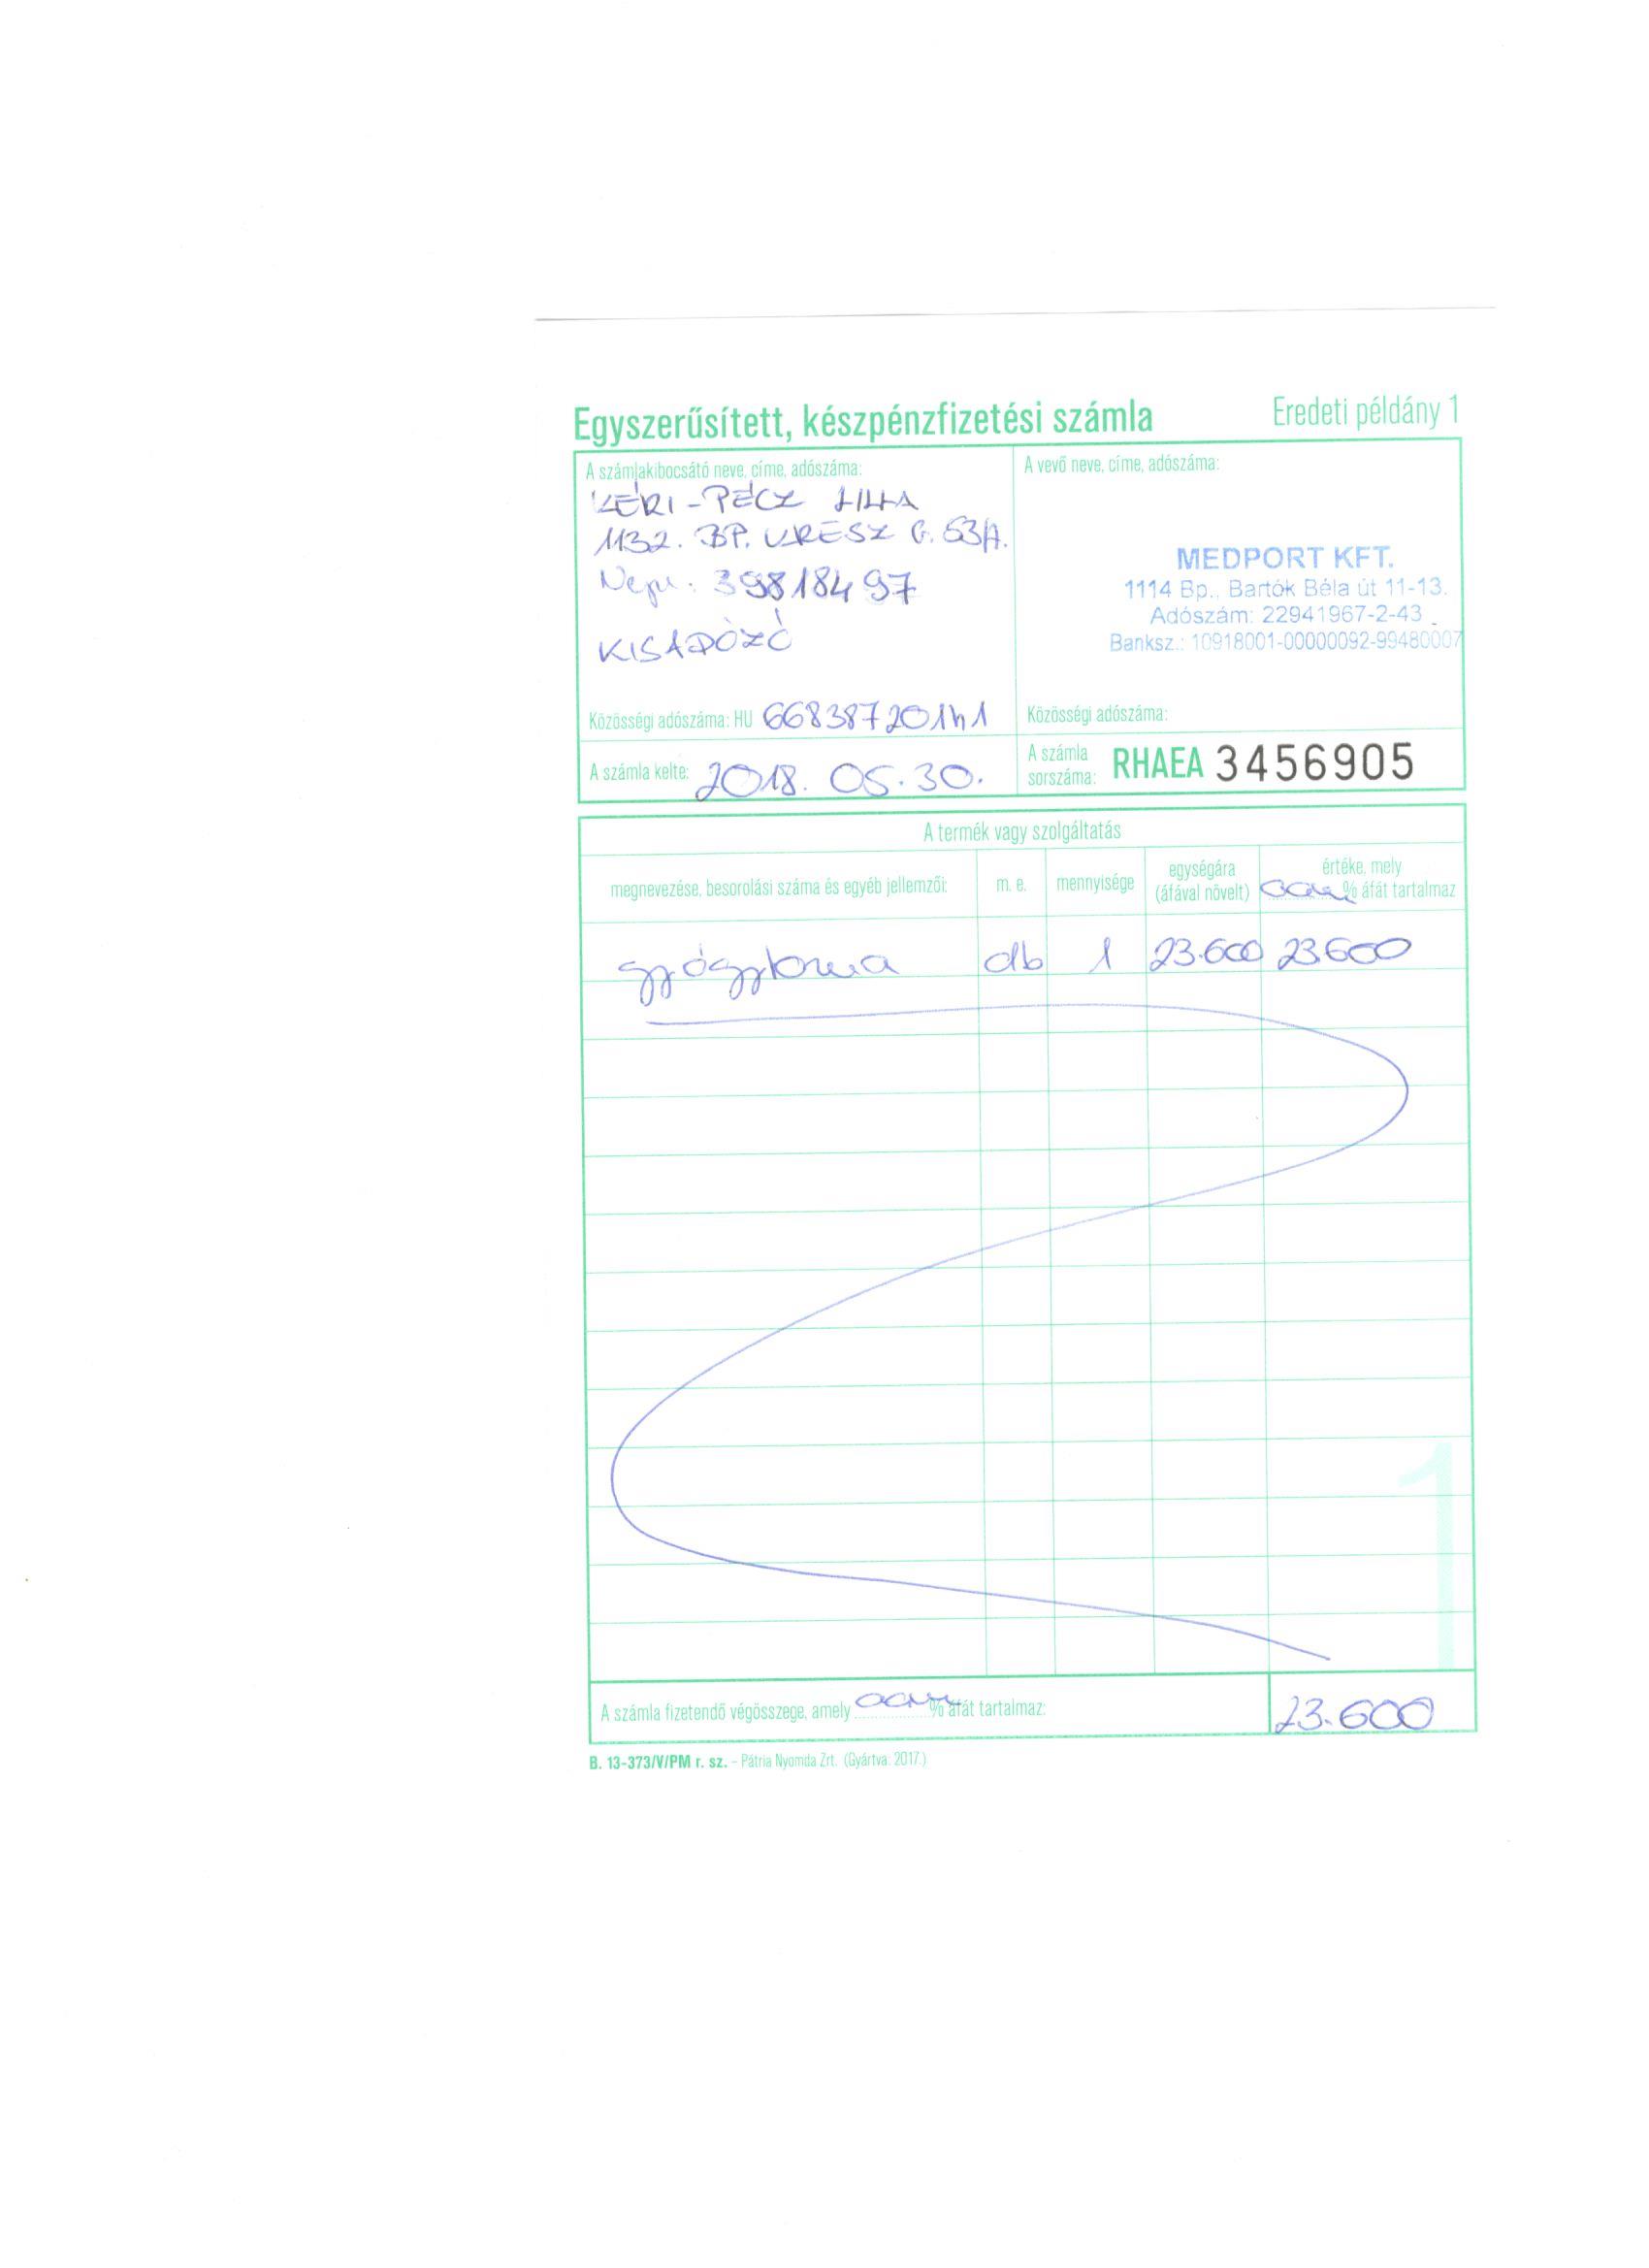 Egyszerűsített, készpénzfizetési számla
Eredeti példány 1
A számlakibocsátó neve, címe, adószáma:
KÉRI-PÉCZ LILLA
1132. BP. VRESZ G. 53/A.
Nepu: 39818497
KISADÓZÓ
Közösségi adószáma: HU 66838720141
A vevő neve, címe, adószáma:
MEDPORT KFT.
1114 Bp., Bartók Béla út 11-13.
Adószám: 22941967-2-43
Banksz.: 10918001-00000092-99480007
Közösségi adószáma:
A számla kelte: 2018. 05. 30.
A számla sorszáma: RHAEA 3456905
A termék vagy szolgáltatás
megnevezése, besorolási száma és egyéb jellemzői:
m. e.
mennyisége
egységára
(áfával növelt)
értéke, mely
aam % áfát tartalmaz
gyógytorna db 1 23.600 23.600
A számla fizetendő végösszege, amely aam % áfát tartalmaz: 23.600
B. 13-373/V/PM r. sz. – Pátria Nyomda Zrt. (Gyártva: 2017.)
1